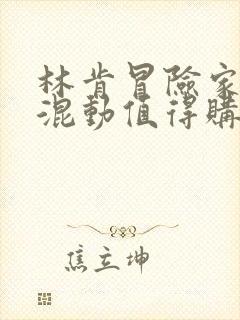 林肯冒險家
混動值得購
焦立坤